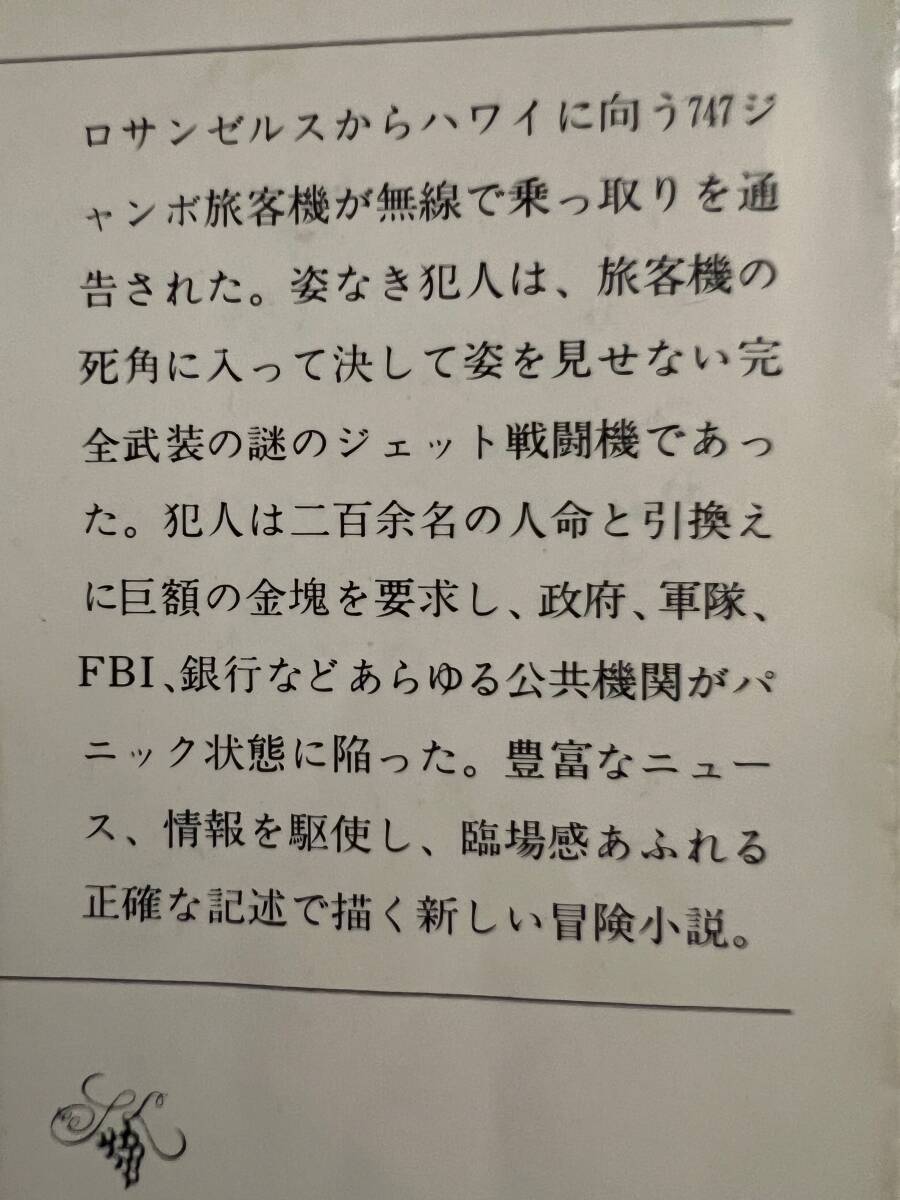 ロサンゼルスからハワイに向う747ジ
ャンボ旅客機が無線で乗っ取りを通
告された。姿なき犯人は、旅客機の
死角に入って決して姿を見せない完
全武装の謎のジェット戦闘機であっ
た。犯人は二百余名の人命と引換え
に巨額の金塊を要求し、政府、軍隊、
FBI、銀行などあらゆる公共機関がパ
ニック状態に陥った。豊富なニュー
ス、情報を駆使し、臨場感あふれる
正確な記述で描く新しい冒険小説。